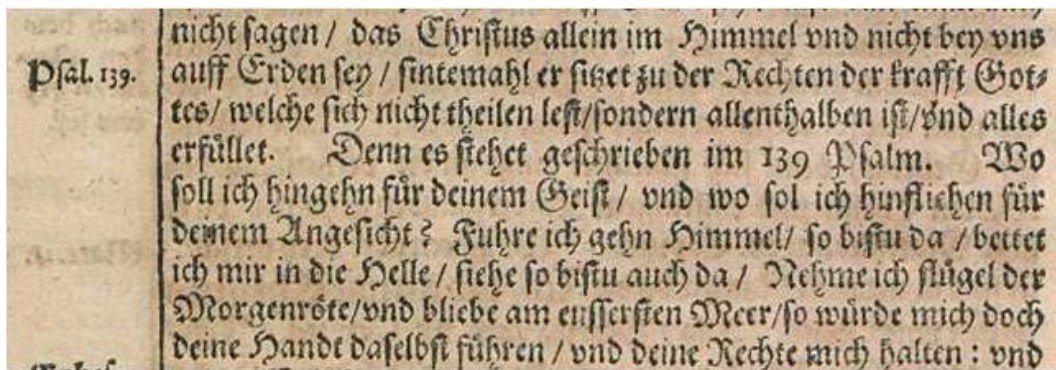 nicht sagen / das Christus allein im Himmel vnd nicht bey vns
Psal. 139.
auff Erden sey / sintemahl er sitzet zu der Rechten der krafft Got⸗
tes / welche sich nicht theilen lest/sondern allenthalben ist/vnd alles
erfüllet. Denn es stehet geschrieben im 139 Psalm. Wo
soll ich hingehn für deinem Geist / vnd wo sol ich hinfliehen für
deinem Angesicht? Fuhre ich gehn Himmel/ so bistu da / bettet
ich mir in die Helle / siehe so bistu auch da / Nehme ich flügel der
Morgenröte/vnd bliebe am eussersten Meer/so würde mich doch
deine Handt daselbst führen / vnd deine Rechte mich halten : vnd